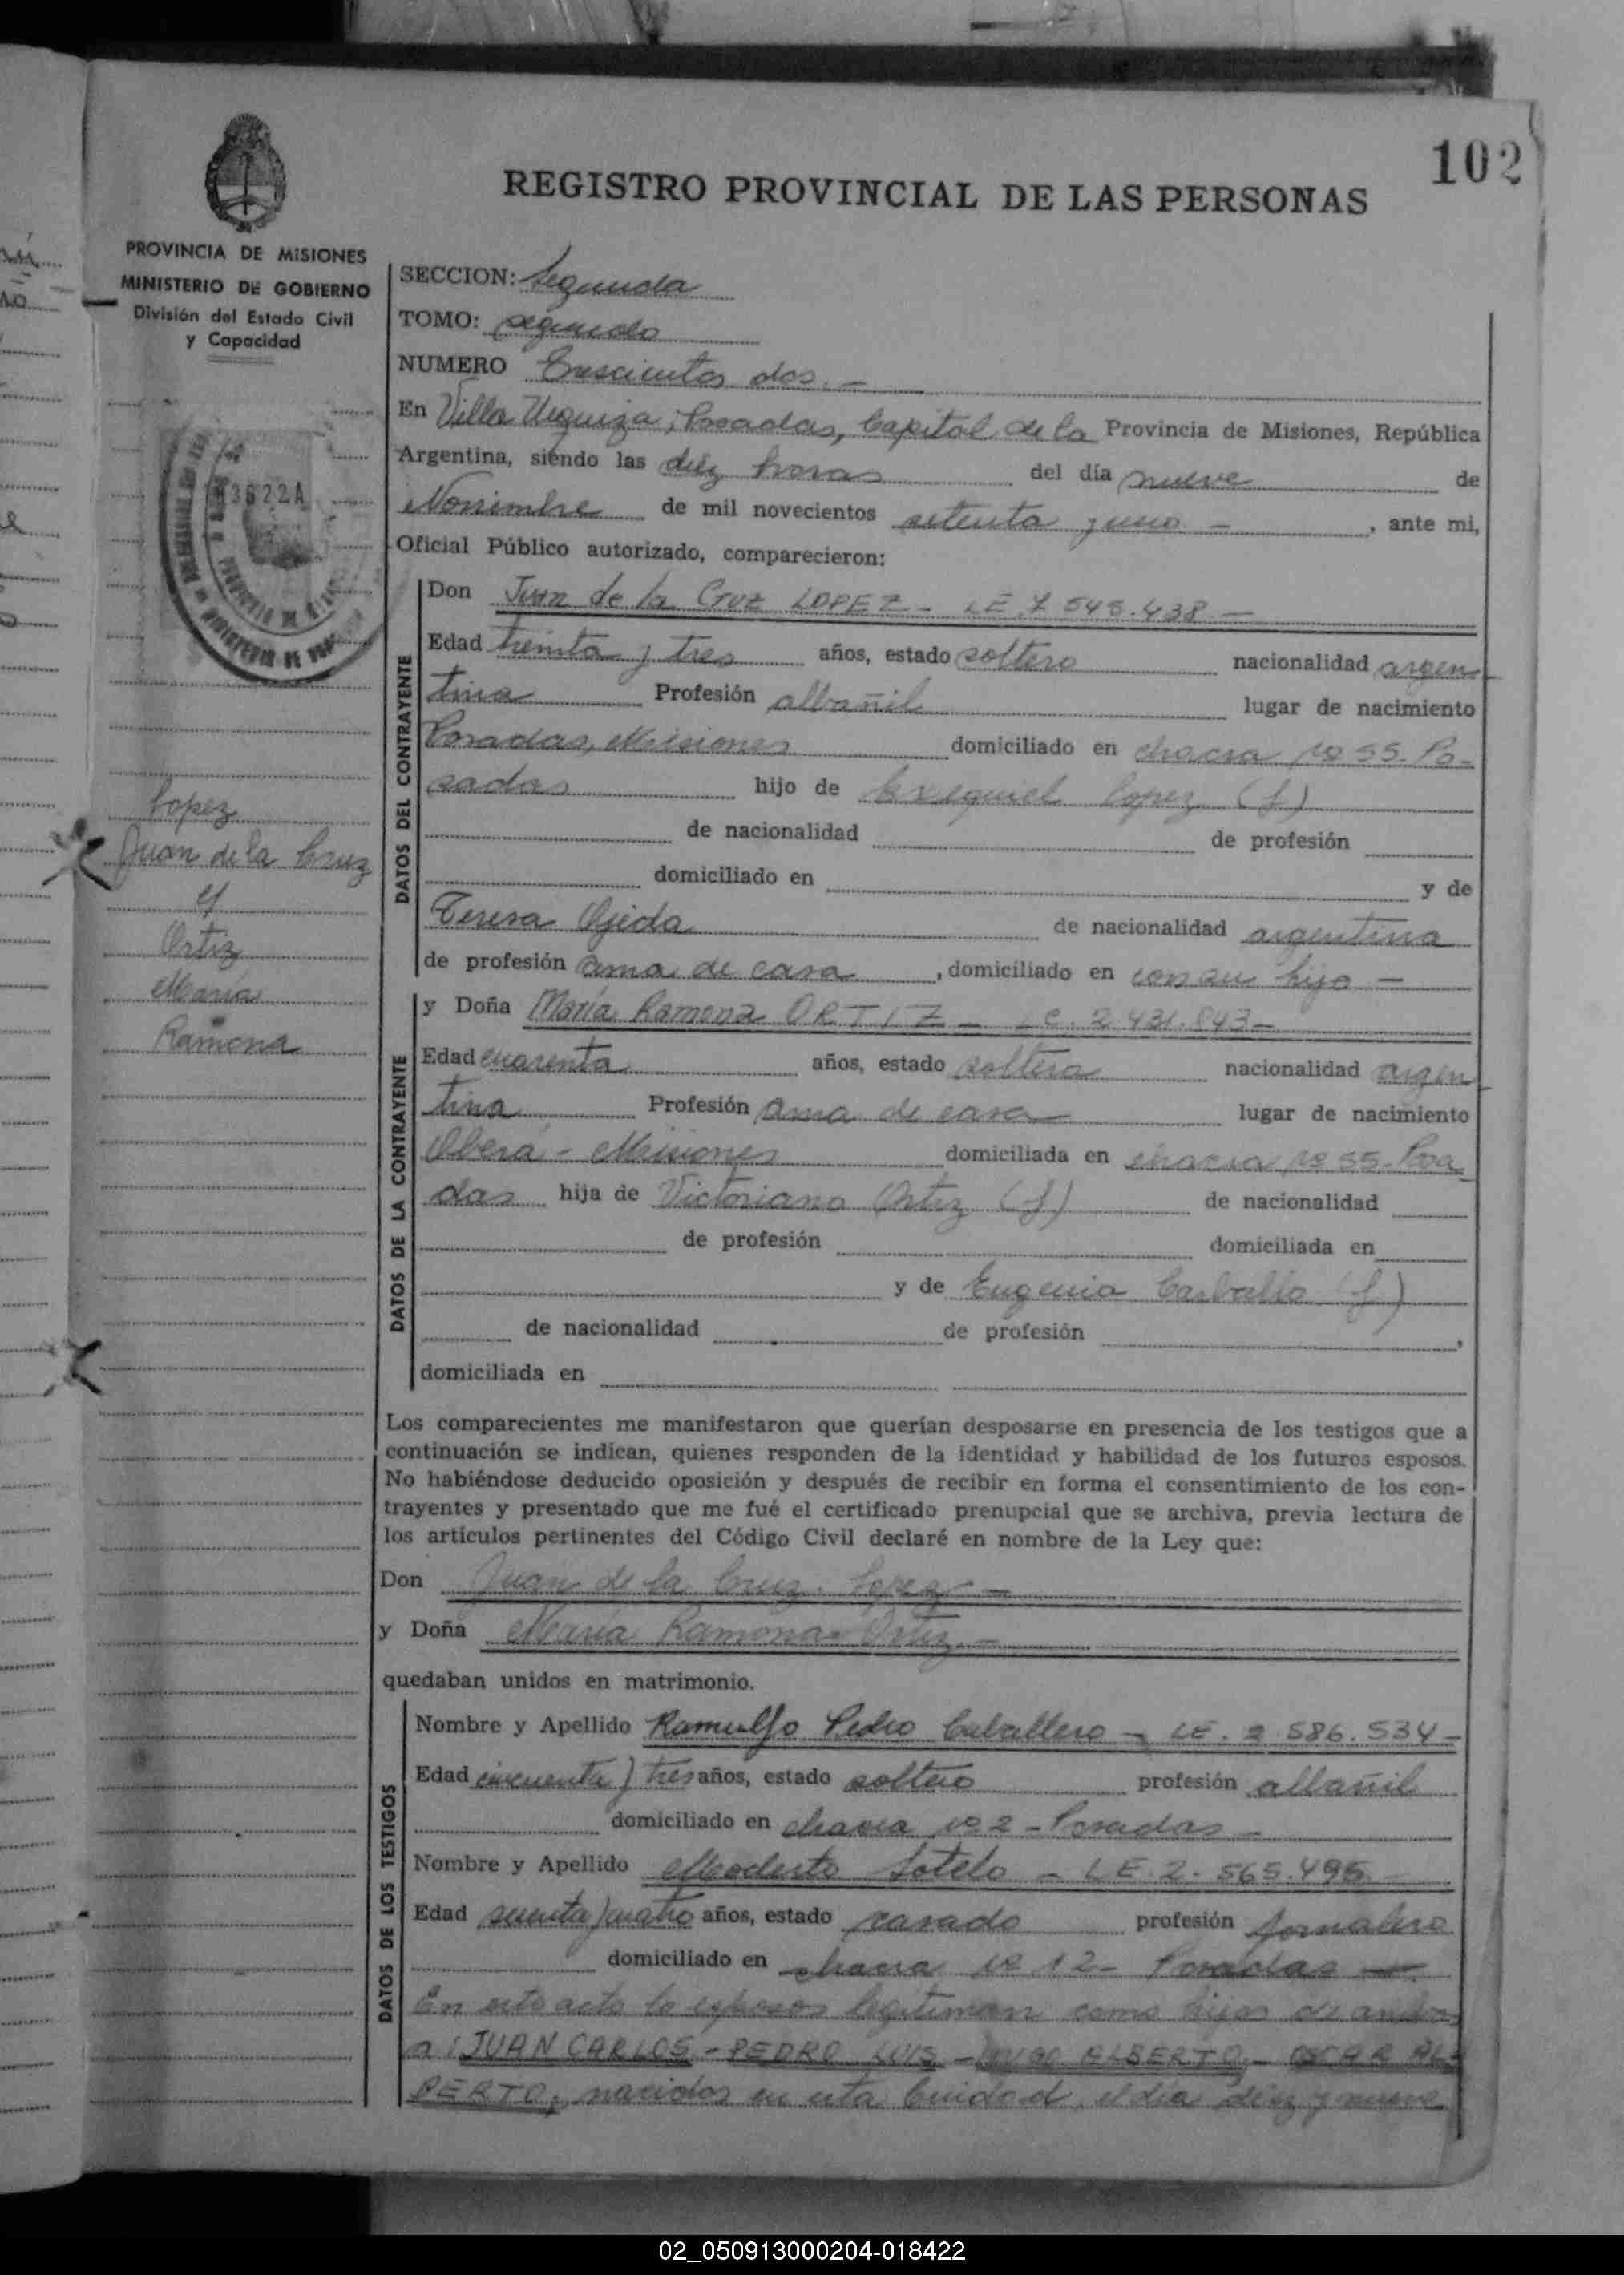 102
REGISTRO PROVINCIAL DE LAS PERSONAS
PROVINCIA DE MISIONES
MINISTERIO DE GOBIERNO
División del Estado Civil
y Capacidad
SECCION: Segunda
TOMO: segundo
NUMERO Trescientos dos. —
En Villa Urquiza, Posadas, Capital de la Provincia de Misiones, República
Argentina, siendo las diez horas del día nueve de
Noviembre de mil novecientos setenta y uno —, ante mi,
Oficial Público autorizado, comparecieron:
DATOS DEL CONTRAYENTE
Don Juan de la Cruz LOPEZ - LE 7.545.438 —
Edad treinta y tres años, estado soltero nacionalidad argen
tina Profesión albañil lugar de nacimiento
Posadas, Misiones domiciliado en chacra Nº 55- Po-
sadas hijo de Exequiel Lopez (f)
de nacionalidad de profesión
domiciliado en y de
Teresa Ojeda de nacionalidad argentina
de profesión ama de casa, domiciliado en con su hijo —
Lopez
Juan de la Cruz
y
Ortiz
María
Ramona
DATOS DE LA CONTRAYENTE
y Doña María Ramona ORTIZ - LC. 2.431.843-
Edad cuarenta años, estado soltera nacionalidad argen
tina Profesión ama de casa lugar de nacimiento
Oberá - Misiones domiciliada en chacra Nº 55- Posa
das hija de Victoriano Ortiz (f) de nacionalidad
de profesión domiciliada en
y de Eugenia Carballo (f)
de nacionalidad de profesión ,
domiciliada en
Los comparecientes me manifestaron que querían desposarse en presencia de los testigos que a
continuación se indican, quienes responden de la identidad y habilidad de los futuros esposos.
No habiéndose deducido oposición y después de recibir en forma el consentimiento de los con-
trayentes y presentado que me fué el certificado prenupcial que se archiva, previa lectura de
los artículos pertinentes del Código Civil declaré en nombre de la Ley que:
Don Juan de la Cruz Lopez —
y Doña María Ramona Ortiz —
quedaban unidos en matrimonio.
DATOS DE LOS TESTIGOS
Nombre y Apellido Ramulfo Pedro Caballero - LE. 2.586.534-
Edad cincuenta y tres años, estado soltero profesión albañil
domiciliado en chacra Nº 2 - Posadas -
Nombre y Apellido Modesto Sotelo - LE. 2.565.495
Edad sesenta y cuatro años, estado casado profesión jornalero
domiciliado en chacra Nº 12- Posadas —
En este acto lo esposos legitiman como hijos de ambos
a: JUAN CARLOS - PEDRO LUIS - HUGO ALBERTO - OSCAR AL
BERTO; nacidos en esta Ciudad, el día diez y nueve
02_050913000204-018422